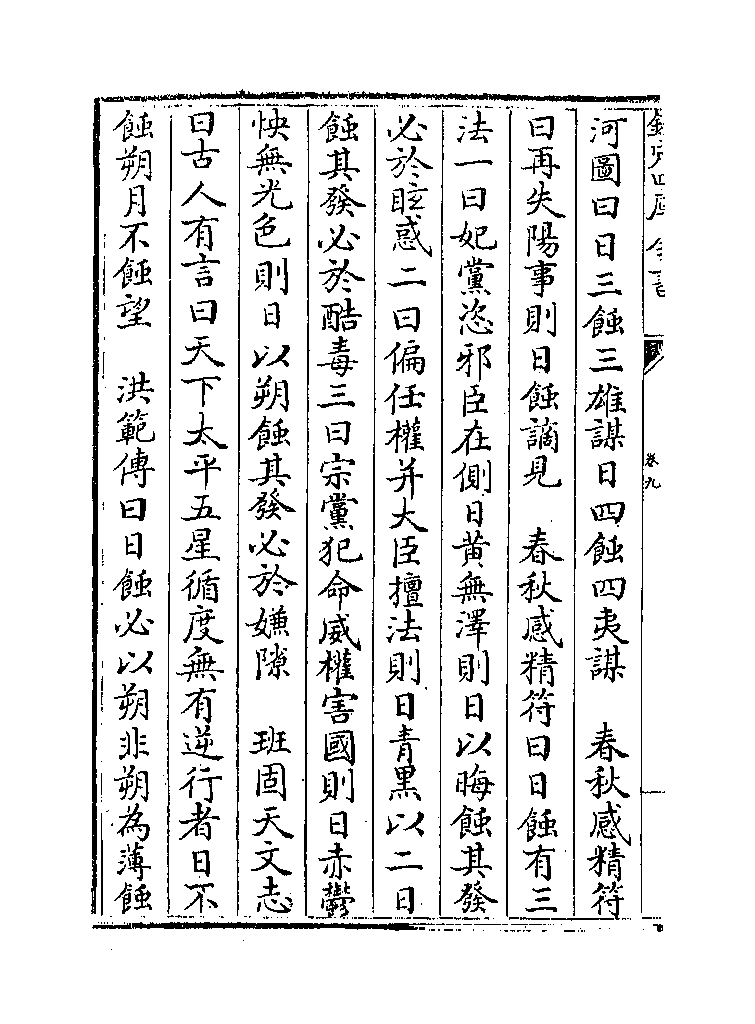 欽定四庫全書
卷九
河圖曰日三蝕三雄謀日四蝕四夷謀　春秋感精符
曰再失陽事則日蝕謫見　春秋感精符曰日蝕有三
法一曰妃黨恣邪臣在側日黄無澤則日以晦蝕其發
必於眩惑二曰偏任權并大臣擅法則日青黑以二日
蝕其發必於酷毒三曰宗黨犯命威權害國則日赤鬱
怏無光色則日以朔蝕其發必於嫌隙　班固天文志
曰古人有言曰天下太平五星循度無有逆行者日不
蝕朔月不蝕望　洪範傳曰日蝕必以朔非朔為薄蝕